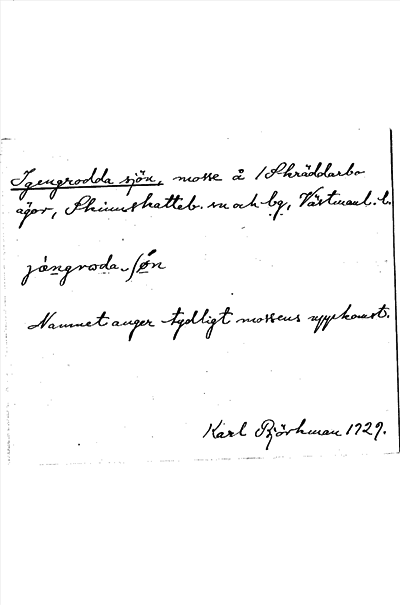 Igengrodda sjön, mosse å 1 Skräddarbo
ägor, Skinnskatteb. sn och bg, Västmanl. l.
jängroda ʃön
Namnet anger tydligt mossens uppkomst.
Karl Björkman 1929.